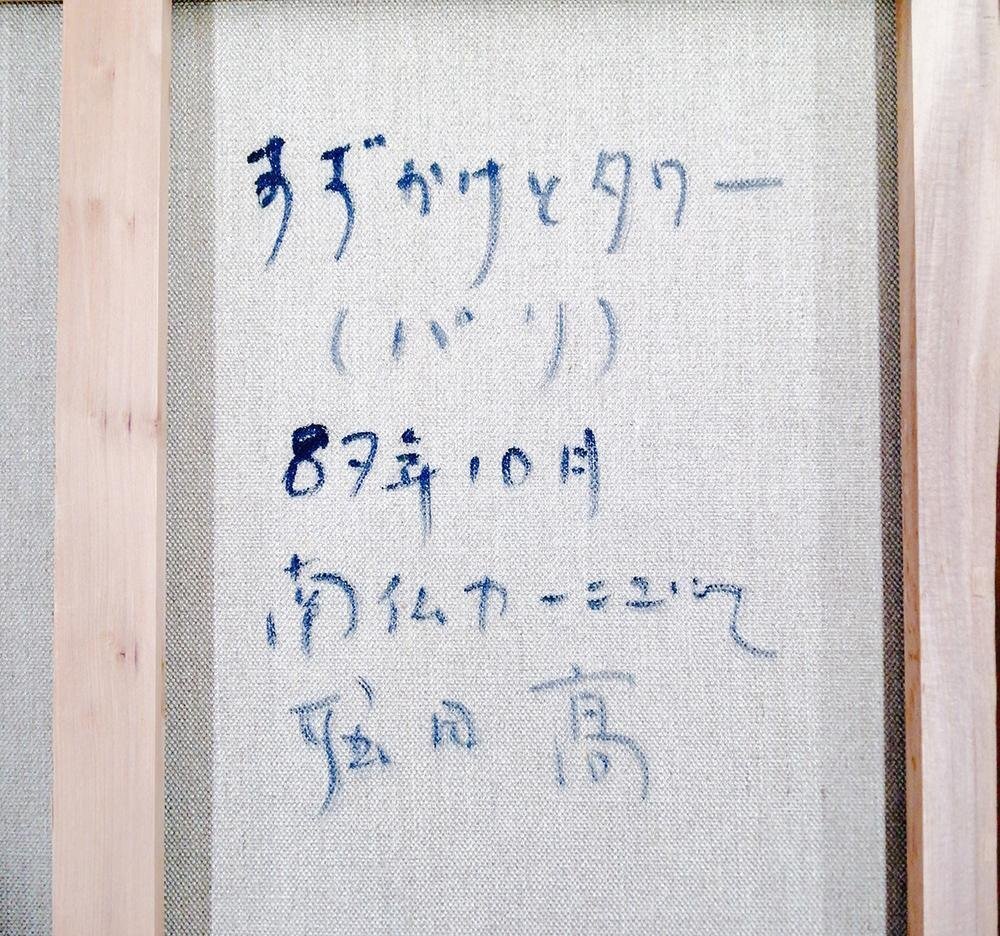 すずかけとタワー
(パリ)
87年10月
南仏カーニュにて
高